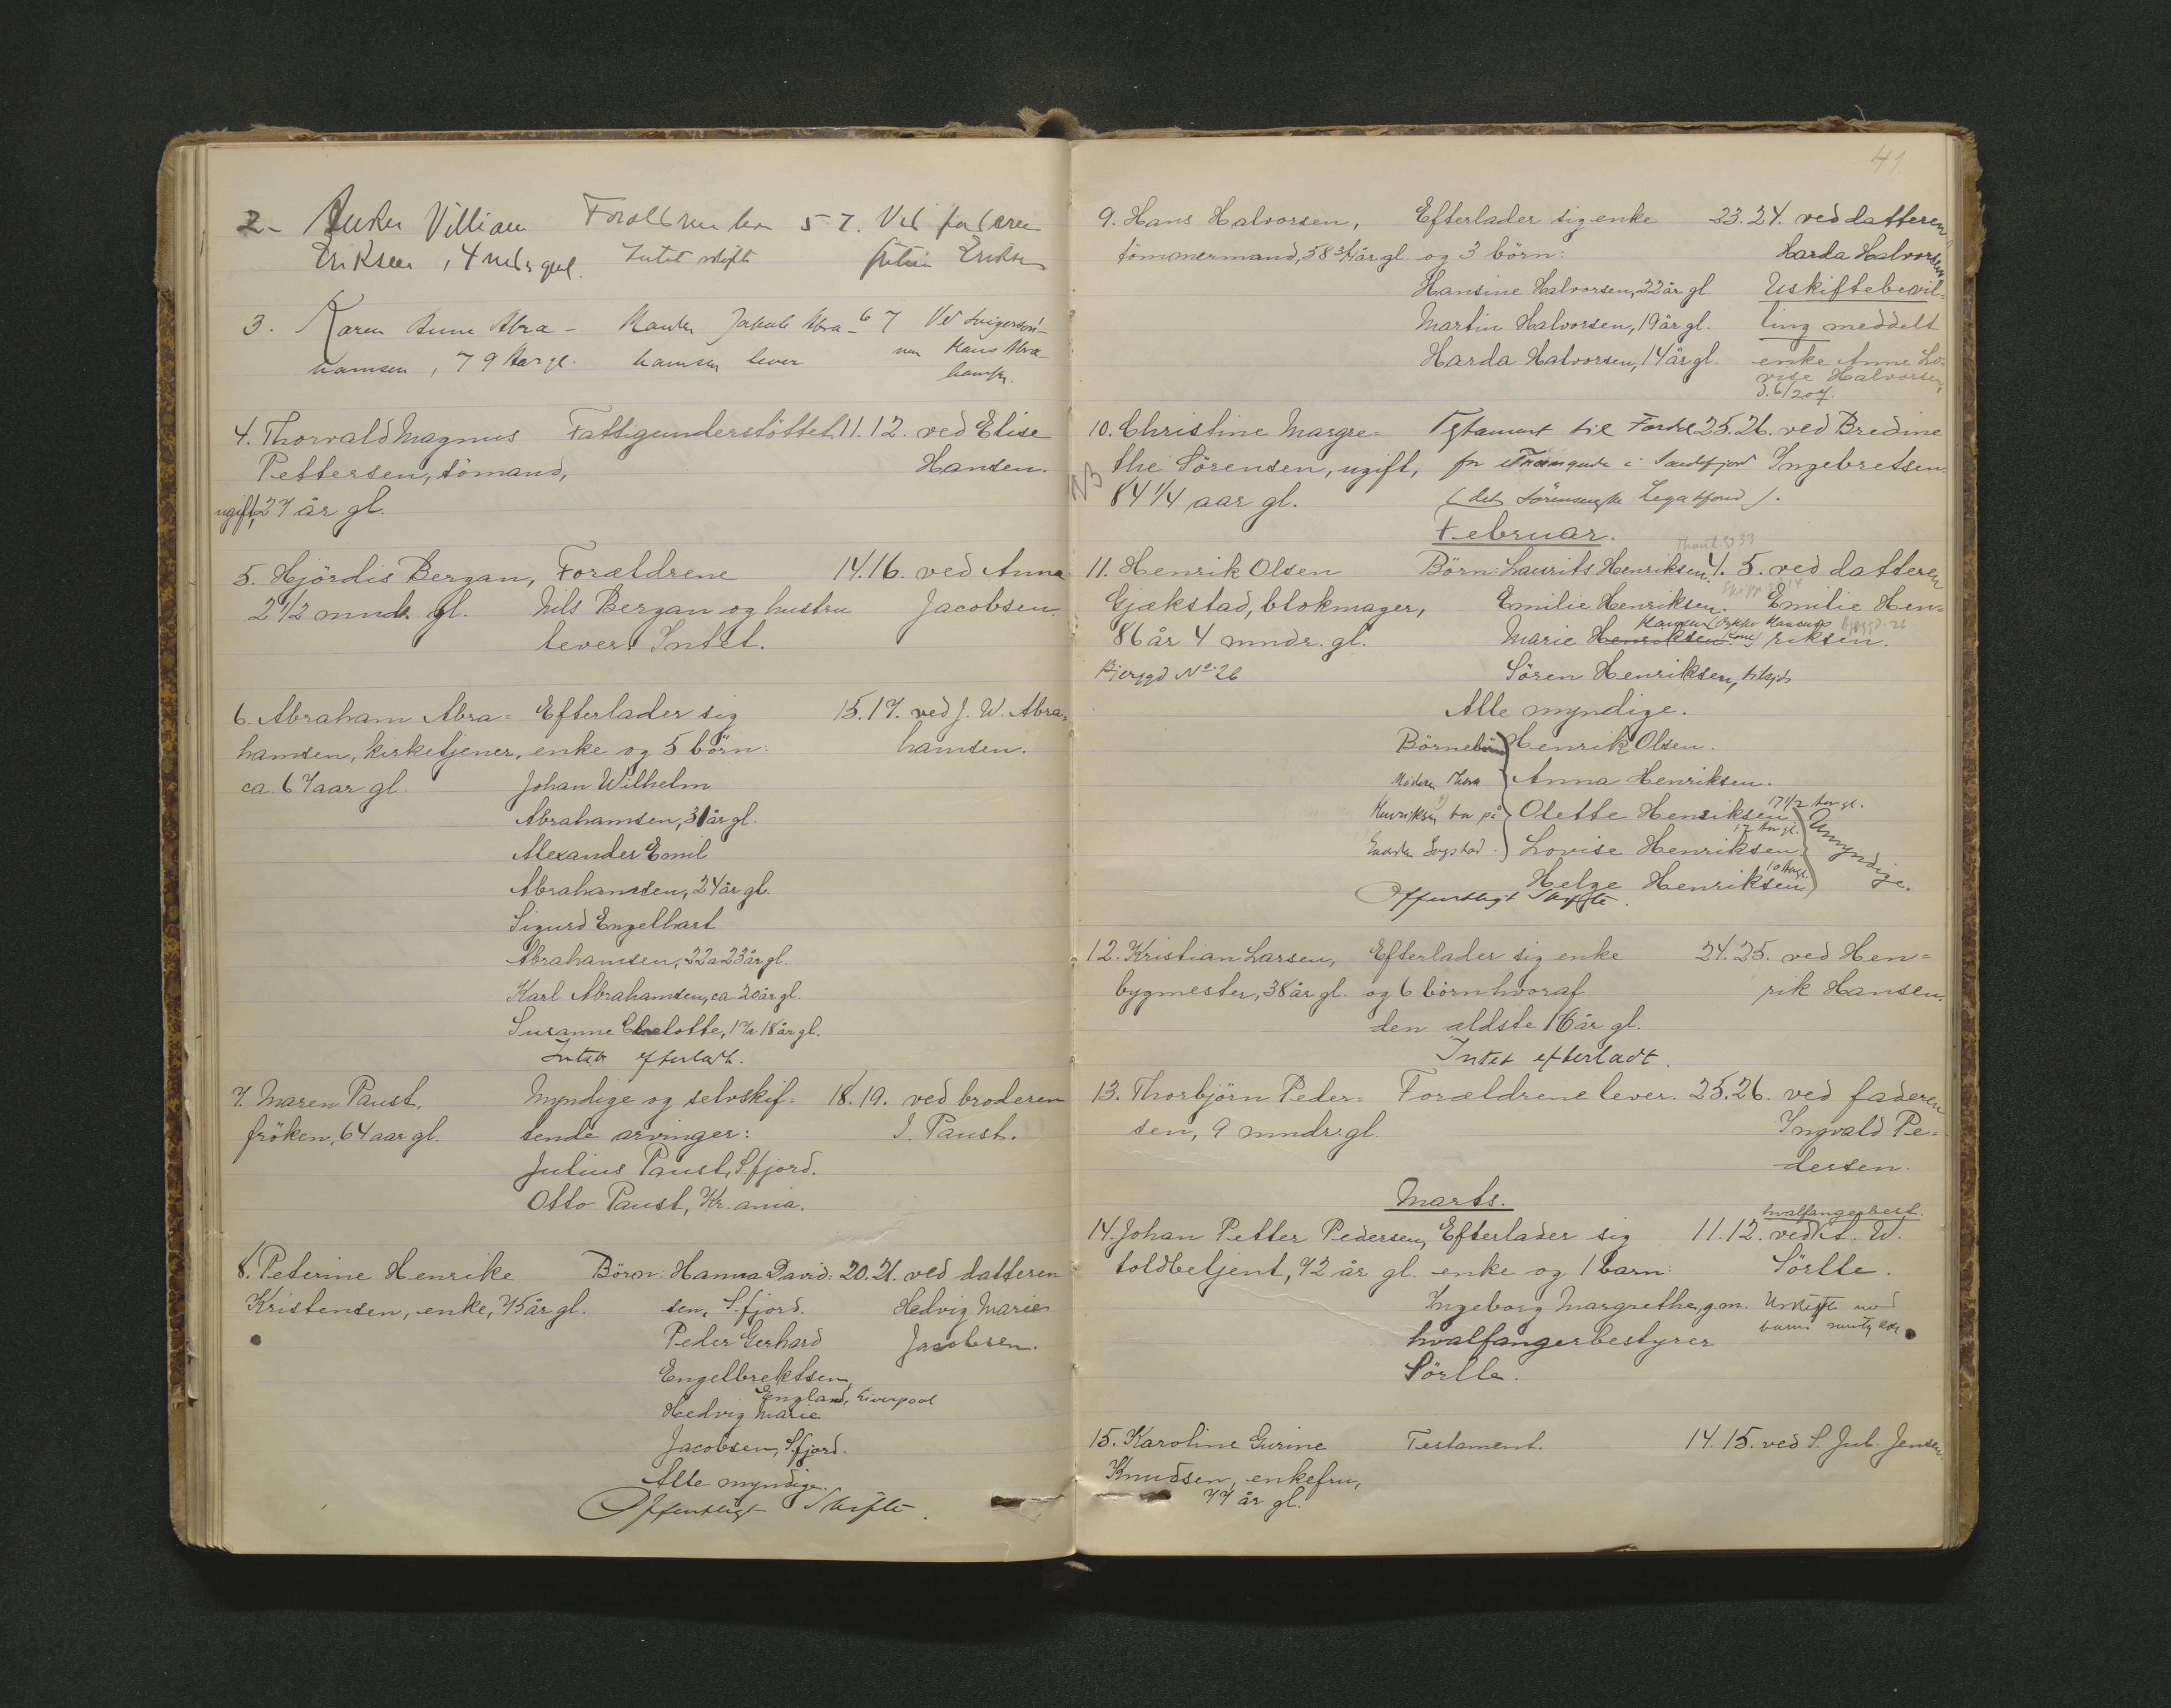 2. Anker Villiam Forældrene lever 5 7. Ved faderen
Eriksen, 4 mdr gml. Intet skifte Eriksen
3. Karen Anne Abra- Manden Jakob Abra- 6 7 Ved Svigersøn-
hamsen, 79 Aar gl. hamsen lever nen Hans Abra-
hamsen.
4. Thorvald Magnus Fattigunderstöttet. 11. 12. ved Elise
Pettersen, sömand, Hansen.
ugift, 27 år gl.
5. Hjördis Bergan, Forældrene 14. 16. ved Anna
2 1/2 mndr. gl. Nils Bergan og hustru Jacobsen.
lever. Intet.
6. Abraham Abra= Efterlader sig 15. 17. ved J. W. Abra=
hamsen, kirketjener, enke og 5 börn: hamsen.
ca. 67 aar gl. Johan Wilhelm
Abrahamsen, 31 år gl.
Alexander Emil
Abrahamsen, 24 år gl.
Sigurd Engelhart
Abrahamsen, 22 a 23 år gl.
Karl Abrahamsen, ca 20 år gl.
Susanne Charlotte, 17 a 18 år gl.
Intet efterladt.
7. Maren Paust, Myndige og selvskif= 18. 19. ved broderen
fröken, 64 aar gl. tende arvinger: J. Paust.
Julius Paust, S.fjord.
Otto Paust, Kr.ania.
8. Peterine Henrike Börn: Hanna David= 20. 21. ved datteren
Kristensen, enke, 75 år gl. sen, S.fjord. Hedvig Marie
Peder Gerhard Jacobsen.
Engelbrektsen,
England, Liverpool
Hedvig Marie
Jacobsen, S.fjord.
Alle myndige.
Offentligt Skifte.
41.
9. Hans Halvorsen, Efterlader sig enke 23. 24. ved datteren
tömmermand, 58 3/4 år gl. og 3 börn: Harda Halvorsen
Hansine Halvorsen, 22 år gl. Uskiftebevil=
Martin Halvorsen, 19 år gl. ling meddelt
Harda Halvorsen, 14 år gl. enke Anne Lo=
vise Halvorsen,
d. 6/2 07.
10. Christine Margre= Testament til Fordel 25. 26. ved Bredine
NB the Sörensen, ugift, for i Sandefjord Ingebretsen.
84 1/4 aar gl. (det Sörensenske Legatfond).
Februar.
11. Henrik Olsen Börn: Laurits Henriksen. 4. 5. ved datteren
Gjækstad, blokmager, Emilie Henriksen. Emilie Hen=
86 år 4 mndr. gl. Marie Henriksen riksen.
Bjerggd No 26 Sören Henriksen, tilsjös
Alle myndige.
Börnebörn Henrik Olsen.
Moderen Thora Anna Henriksen.
Henriksen bor på Olette Henriksen 17 1/2 Aar gl.
Lovise Henriksen 12 Aar gl. Umyndige.
Helge Henriksen 10 Aar gl.
Offentligt Skifte.
12. Kristian Larsen, Efterlader sig enke 24. 25. ved Hen=
bygmester, 38 år gl. og 6 börn hvoraf rik Hansen.
den ældste 16 år gl.
Intet efterladt.
13. Thorbjörn Peder= Forældrene lever. 25. 26. ved faderen
sen, 9 mndr. gl. Ingvald Pe=
dersen.
Marts.
hvalfangerbest.
14. Johan Petter Pedersen, Efterlader sig 11. 12. ved W.
toldbetjent, 72 år gl. enke og 1 barn: Sörlle.
Ingeborg Margrethe, g.m. Uskifte med
hvalfangerbestyrer barns samtykke
Sörlle.
15. Karoline Gurine Testament. 14. 15. ved S. Jul. Jensen.
Knudsen, enkefru,
77 år gl.